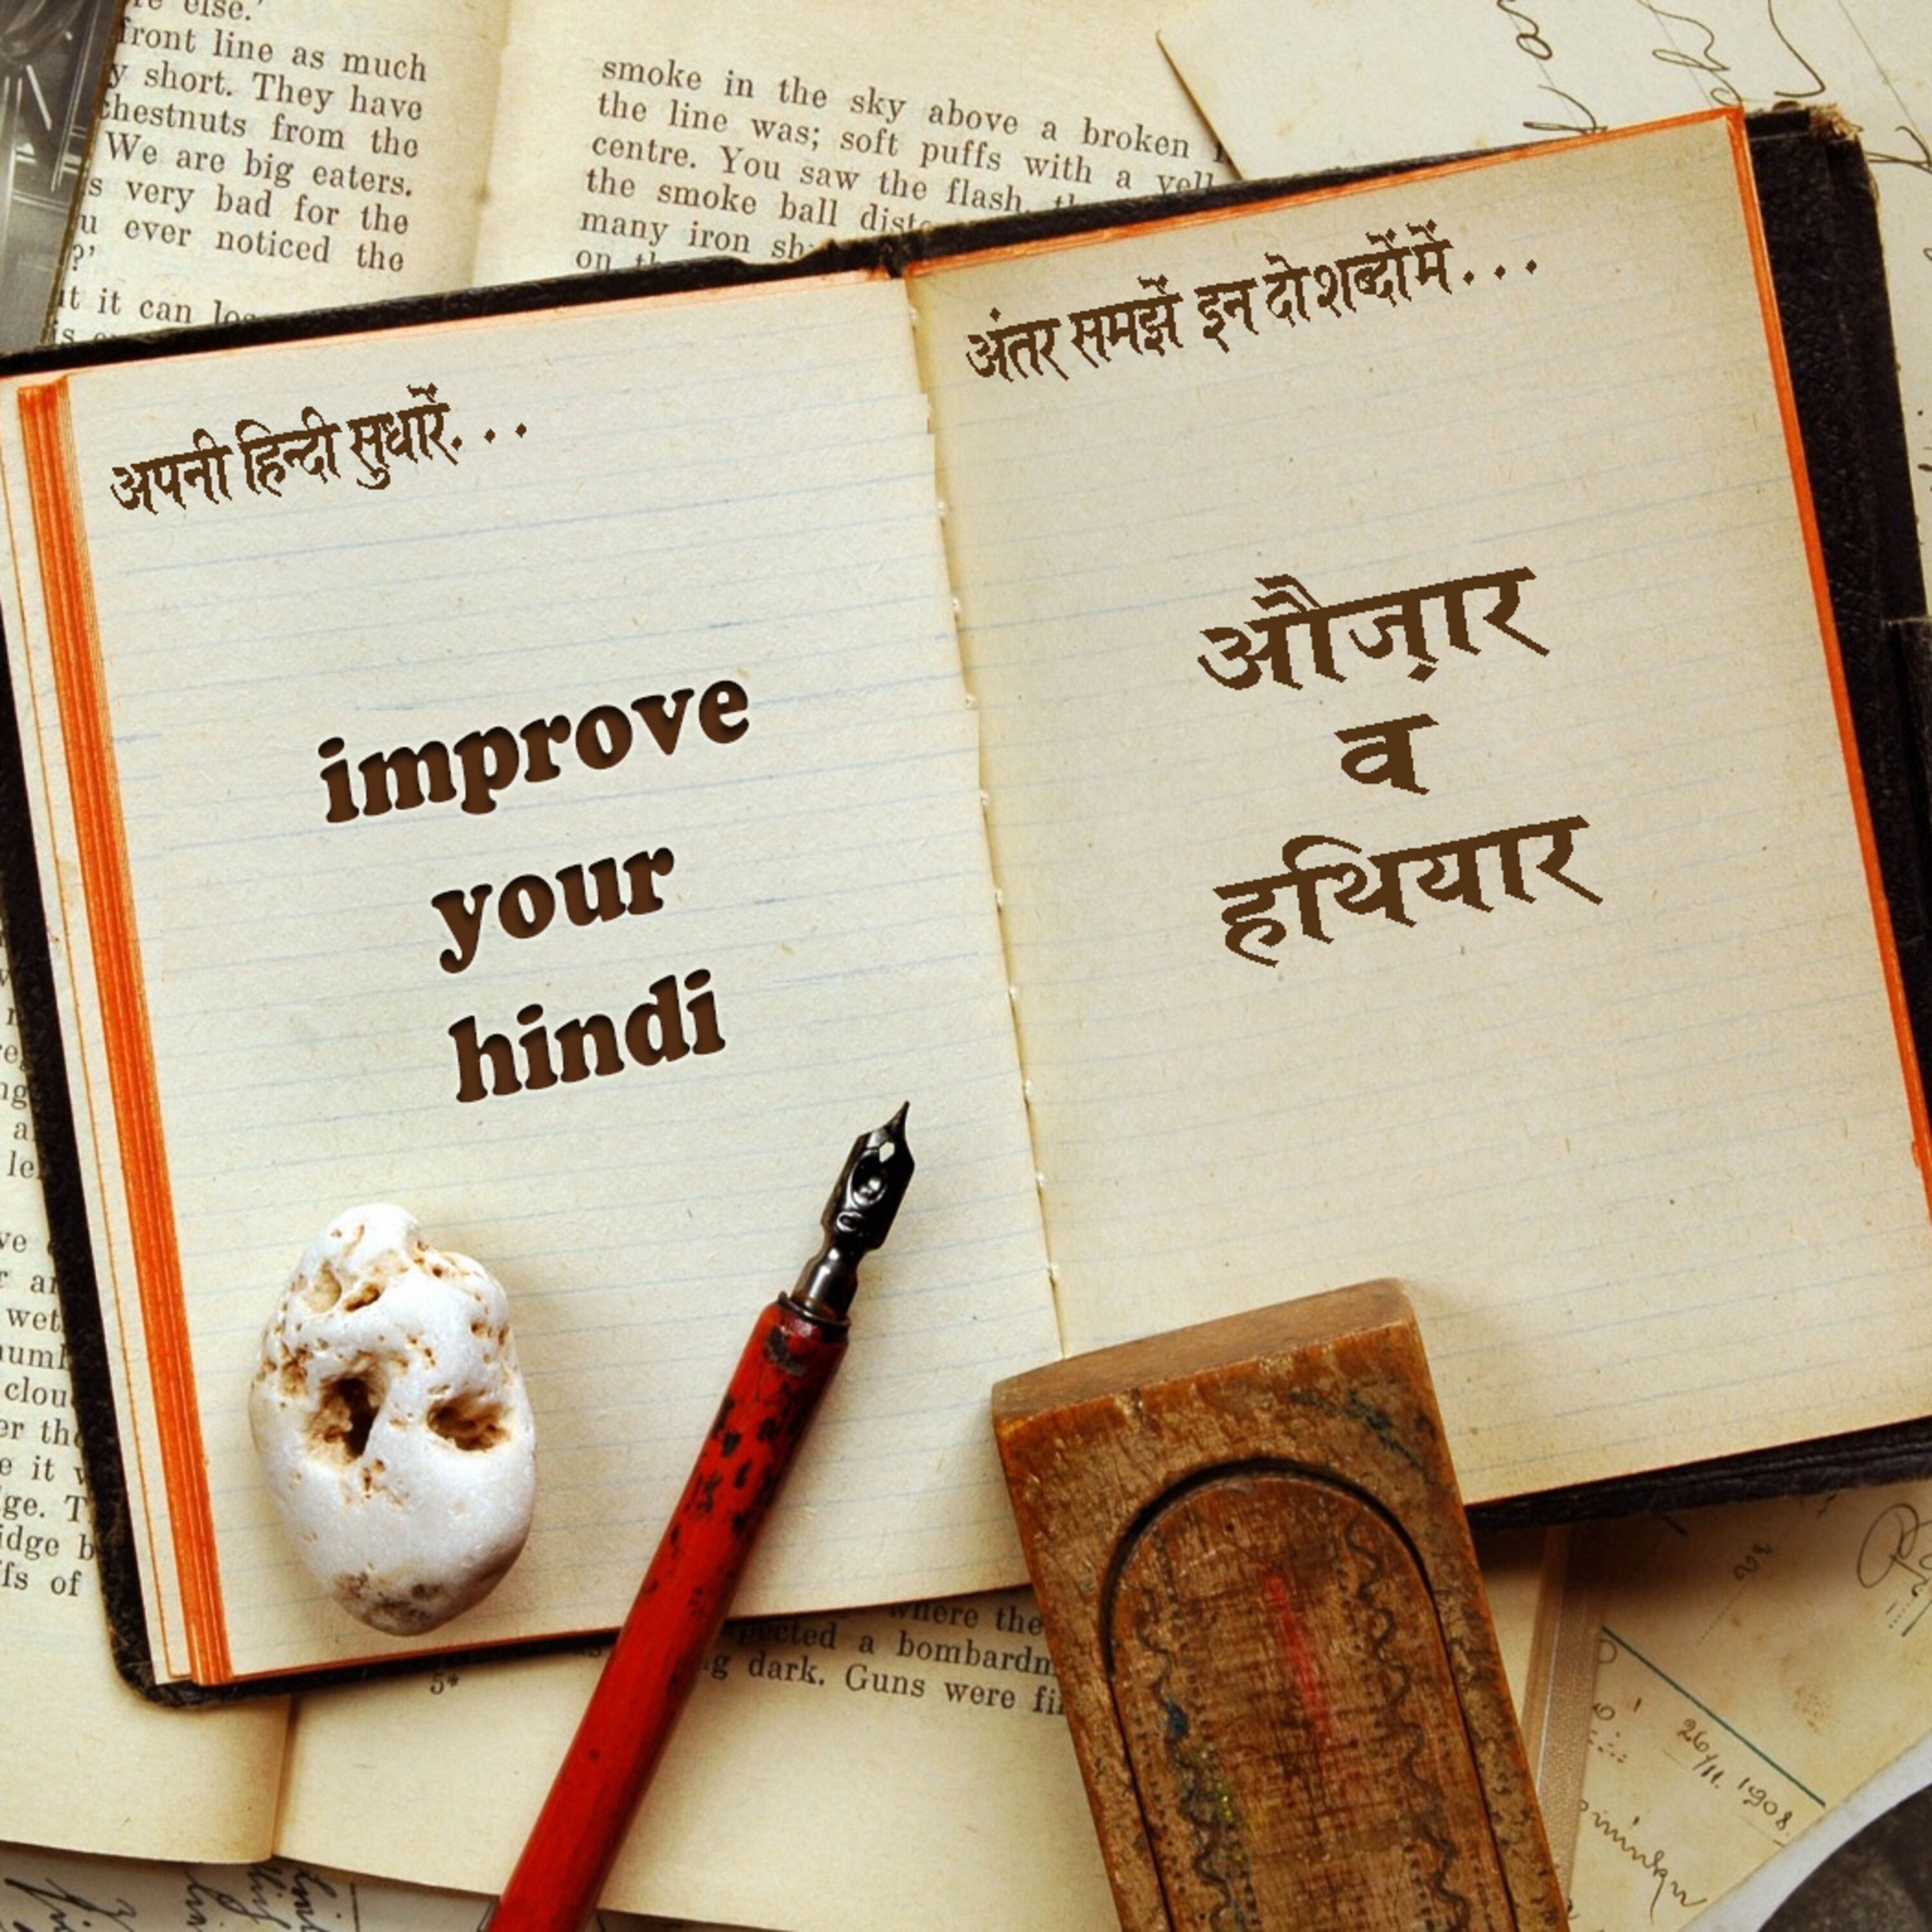 re else.'
front line as much
y short. They have
chestnuts from the
We are big eaters.
s very bad for the
u ever noticed the
?'
it it can
smoke in the sky above a broken
the line was; soft puffs with a yell
centre. You saw the flash,
the smoke ball
many iron
on
अपनी हिन्दी सुधारें...
improve
your
hindi
अंतर समझें इन दो शब्दों में...
औज़ार
व
हथियार
where the
a bombardm
dark. Guns were
5*
wet
clou
it
ge. T
idge b
fs of
26/11. 1908.